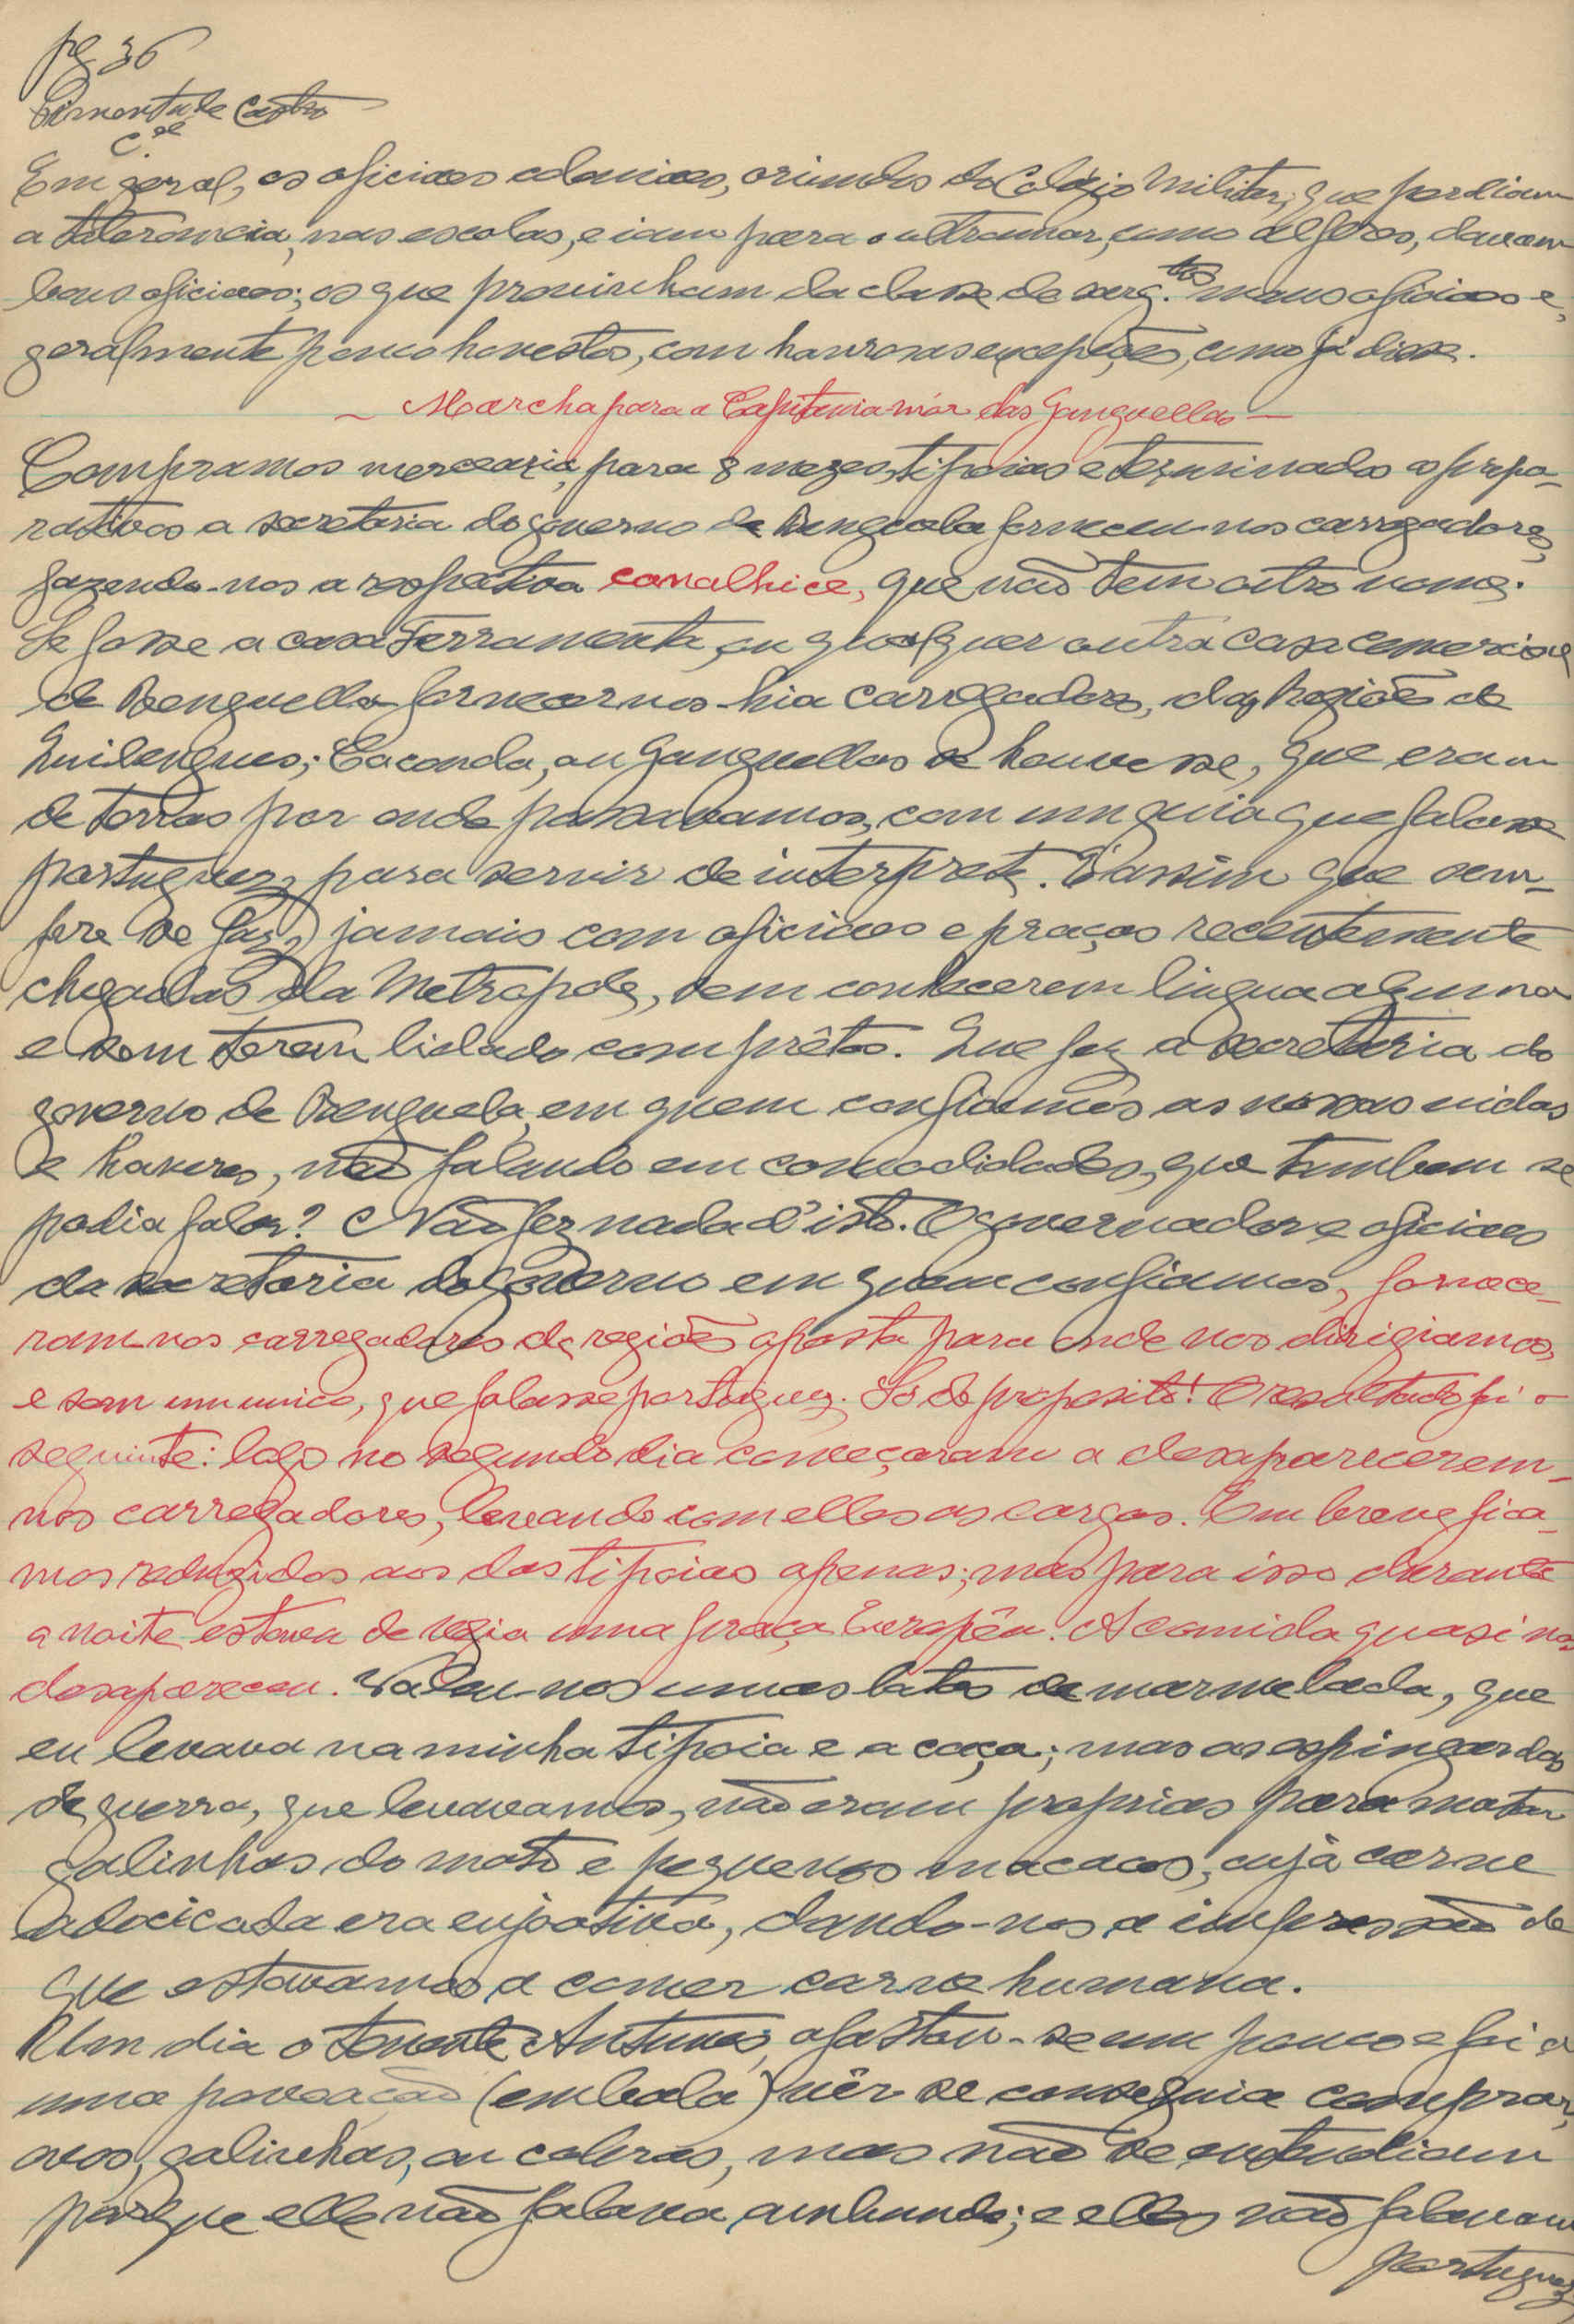 pg 36
Pimenta de Castro
C.el
Em geral, os oficiaes coloniaes, oriundos do Colegio Militar, que perdiam
a tolerancia, nas escolas, e iam para o ultramar, como alferes, davam
bons oficiaes; os que provinham da classe de sarg.tos maus oficiaes e,
geralmente pouco honestos, com honrosas excepções, como já disse.
— Marcha para a Capitania mór das Ganguellas —
Compramos mercearia, para 8 mezes, tipoias e terminados os prepa-
rativos a secretaria do governo de Benguela forneceu-nos carregadores,
fazendo-nos a respectiva canalhice, que não tem outro nome.
Se fosse a casa Ferramenta, ou qualquer outra casa comercial
de Benguella fornecer-nos-hia carregadores, das regiões de
Quilengues, Caconda, ou Ganguellas se houvesse, que eram
de terras por onde passavamos, com um guia que falasse
portuguez, para servir de interprete. É assim que sem-
pre se faz, jamais com oficiaes e praças recentemente
chegadas da Metropole, sem conhecerem lingua alguma
e sem terem lidado com prêtos. Que fez a secretaria do
governo de Benguela, em quem confiamos as nossas vidas
e haveres, não falando em comodidades, que tambem se
podia falar? Não fez nada d'isto. O governador e oficiaes
da secretaria do Governo em quem confiamos, fornece-
ram-nos carregadores da região oposta para onde nos dirigiamos,
e sem um unico, que falasse portuguez. Só de proposito! O resultado foi o
seguinte: logo no segundo dia começaram a desaparecerem-
nos carregadores, levando com elles as cargas. Em breve fica-
mos reduzidos aos das tipoias apenas; mas para isso durante
a noite estava de vegia uma praça Européa. A comida quasi nos
desapareceu. Valeu-nos umas latas de marmelada, que
eu levava na minha tipoia e a caça; mas as espingardas
de guerra, que levavamos, não eram proprias para matar
galinhas do mato e pequenos macacos, cujà carne
adocicada era enjoativa, dando-nos a impressão de
que estavamos a comer carne humana.
Um dia o tenente Antunes, afastou-se um pouco e foi a
uma povoação (embala) vêr se conseguia comprar,
ovos, galinhas, ou cabras, mas não se entendiam
porque elle não falava ambundo; e elles não falavam
portuguez